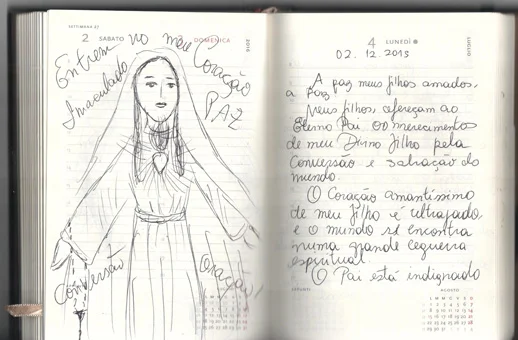 SETTIMANA 27
2 SABATO
DOMENICA
2015
Entrem no meu Coração
Imaculado
PAZ
Conversão
Oração
4 LUNEDÌ
LUGLIO
02.12.2015
A paz meus filhos amados,
a paz
Meus filhos, ofereçam ao
Eterno Pai os merecimentos
de meu Divino Filho pela
Conversão e salvação do
mundo.
O Coração amantíssimo
de meu Filho é ultrajado
e o mundo se encontra
numa grande cegueira
espiritual.
O Pai está indignado
AGOSTO
L M M G V S D